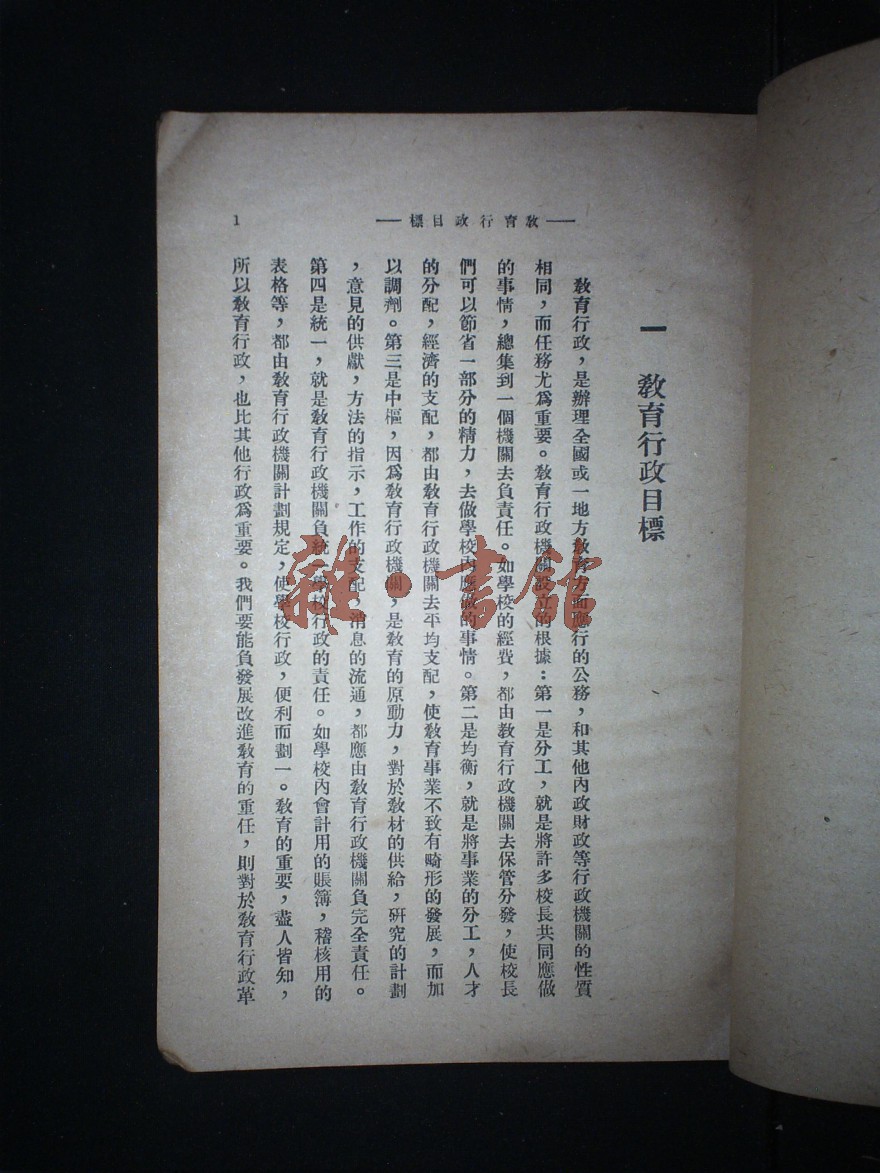 ——教育行政目標——
1
一　教育行政目標
教育行政，是辦理全國或一地方教育方面應行的公務，和其他內政財政等行政機關的性質
相同，而任務尤爲重要。教育行政機關設立的根據：第一是分工，就是將許多校長共同應做
的事情，總集到一個機關去負責任。如學校的經費，都由教育行政機關去保管分發，使校長
們可以節省一部分的精力，去做學校內應做的事情。第二是均衡，就是將事業的分工，人才
的分配，經濟的支配，都由教育行政機關去平均支配，使教育事業不致有畸形的發展，而加
以調劑。第三是中樞，因爲教育行政機關，是教育的原動力，對於教材的供給，研究的計劃
，意見的供獻，方法的指示，工作的支配，消息的流通，都應由教育行政機關負完全責任。
第四是統一，就是教育行政機關負統一學校行政的責任。如學校內會計用的賬簿，稽核用的
表格等，都由教育行政機關計劃規定，使學校行政，便利而劃一。教育的重要，盡人皆知，
所以教育行政，也比其他行政爲重要。我們要能負發展改進教育的重任，則對於教育行政革
雜·書館